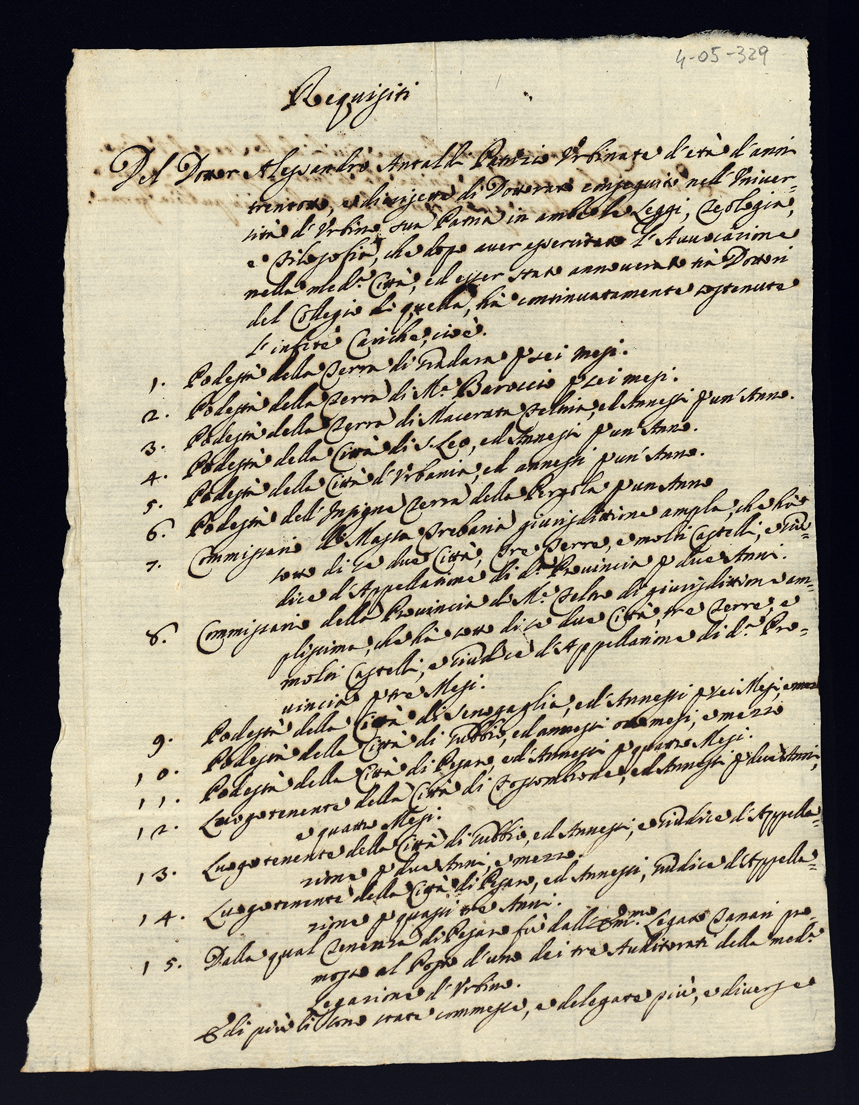 4-05-329
Requisiti
Del Dottor Alessandro Antaldi Patrizio Urbinate d'età d'anni
trentotto, e di anzietà di Dottorato conseguito nell'Univer-
sità d'Urbino sua Patria in ambe le Leggi, Teologia,
e Filosofia, che dopo aver esercitato l'Avvocazione
nella med.ª Città, ed esser stato annoverato trà Dottori
del Collegio di quella, hà continuatamente sostenute
l'infrte Cariche, cioè.
1. Podestà della Terra di Gradara p sei mesi.
2. Podestà della Terra di M.e Baroccio p sei mesi.
3. Podestà della Terra di Macerata Feltria, ed Annessi p un'Anno.
4. Podestà della Città di S. Leo, ed Annessi p un'Anno.
5. Podestà della Città d'Urbania, ed annessi p un'Anno.
6. Podestà dell'Insigne Terra della Pergola p un Anno
7. Commissario di Massa Trebaria giurisdittione ampla, che hà
sotto di se due Città, Tre Terre, e molti Castelli, e Giu-
dice d'Appellazione di d.ª Provincia p due Anni.
8. Commissario della Provincia di M.e Feltro di giurisdittione am-
plissima, che hà sotto di se due Città, tre Terre, e
molti Castelli, e Giudice d'Appellazione di d.ª Pro-
vincia p tre Mesi.
9. Podestà della Città di Senegaglia, ed'Annessi p sei Mesi, e mezzo
10. Podestà della Città di Gubbio, ed annessi otto mesi, e mezzo
11. Podestà della Città di Pesaro, ed'Annessi p quattro Mesi.
12. Luogotenente della Città di Fossombrone, ed Annessi p due Anni,
e quattro Mesi.
13. Luogotenente della Città di Gubbio, ed Annessi, e Giudice d'Appella-
zione p due Anni, e mezzo.
14. Luogotenente della Città di Pesaro, ed Annessi, Giudice d'Appella-
zione p quasi tre Anni.
15. Dalla qual Tenenza di Pesaro fù dall'Em.mo Legato Tanari pro-
mosso al Posto d'uno dei tre Auditorati della med.ª
Legazione d'Urbino.
E di più li sono state commesse, e delegate più, e diverse